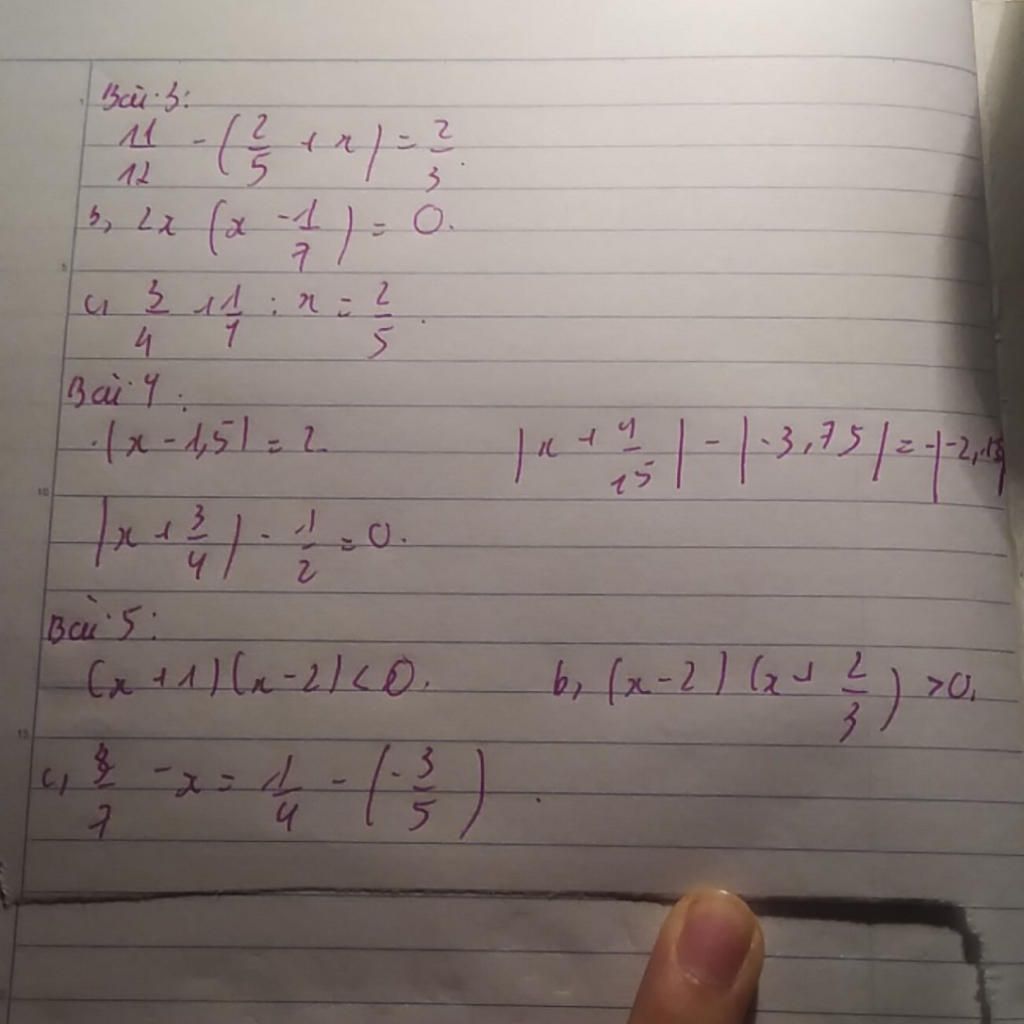 Bài 3:
11/12 - (2/5 + x) = 2/3.
b, 2x (x - 1/7) = 0.
c, 3/4 + 1/4 : x = 2/5.
Bài 4.
|x - 1,5| = 2
|x + 4/15| - |-3,75| = -|-2,15|
|x + 3/4| - 1/2 = 0.
Bài 5:
(x + 1)(x - 2) < 0.
b, (x - 2)(x + 2/3) > 0.
c, - x = 1/4 - (-3/5).